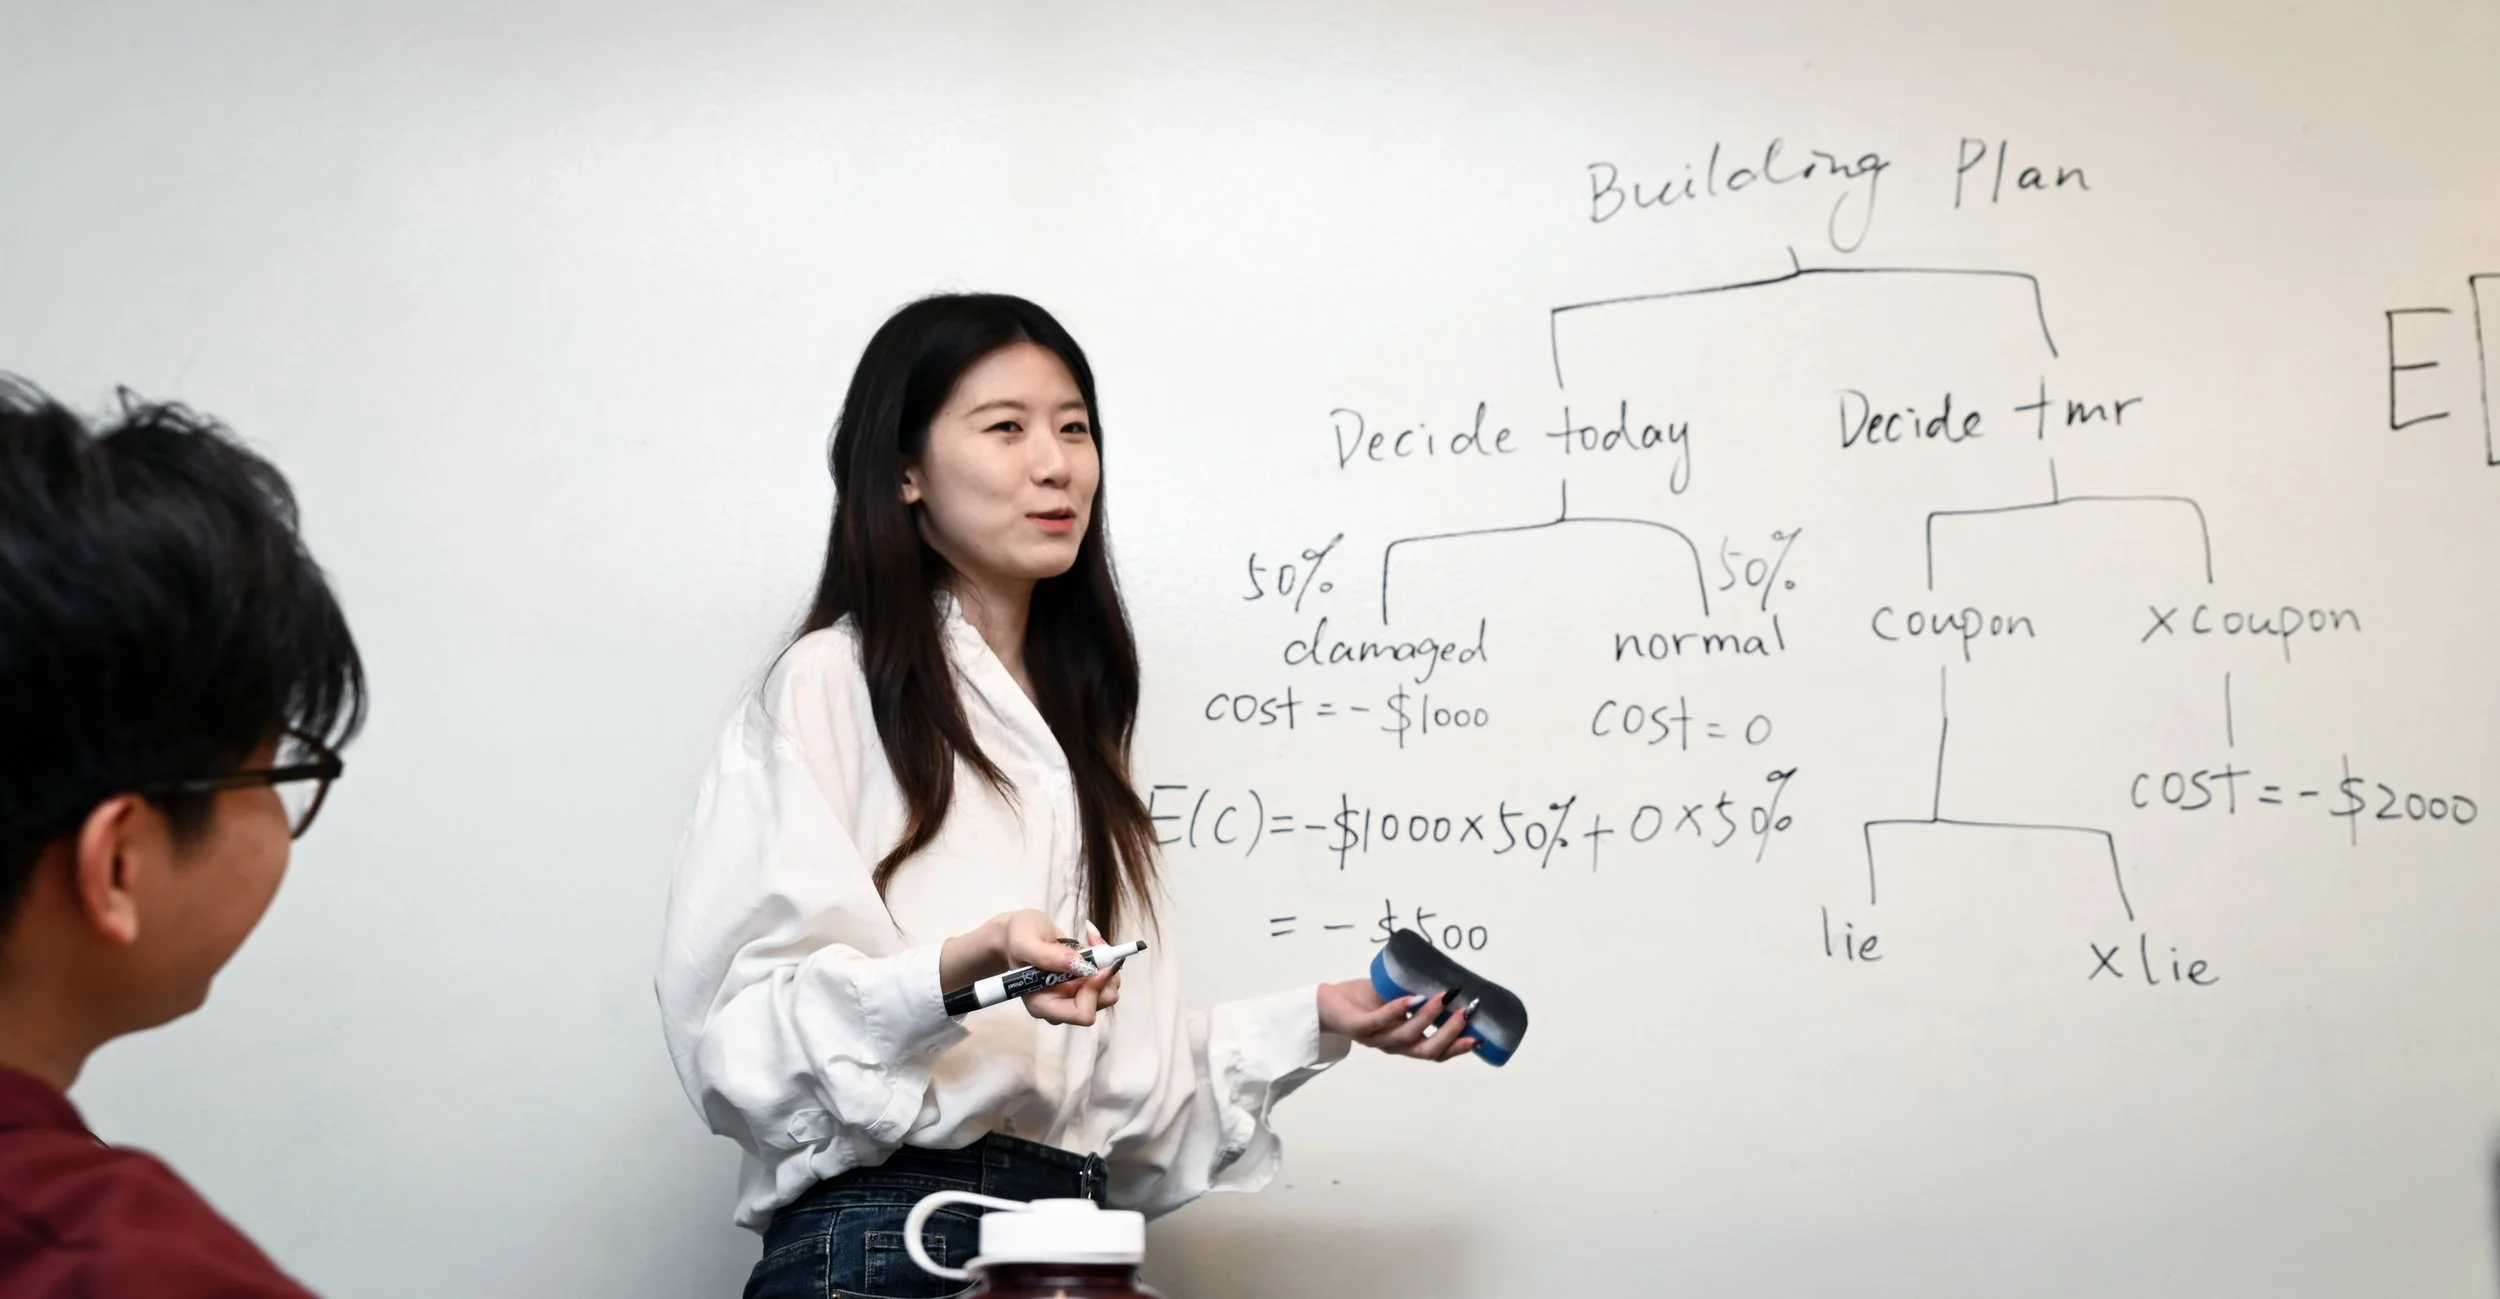 Building Plan
Decide today
Decide tmr
E
50%
50%
damaged
normal
coupon
x coupon
cost = - $1000
cost = 0
cost = - $2000
E(C) = -$1000 x 50% + 0 x 50%
= - $500
lie
x lie
EXPO